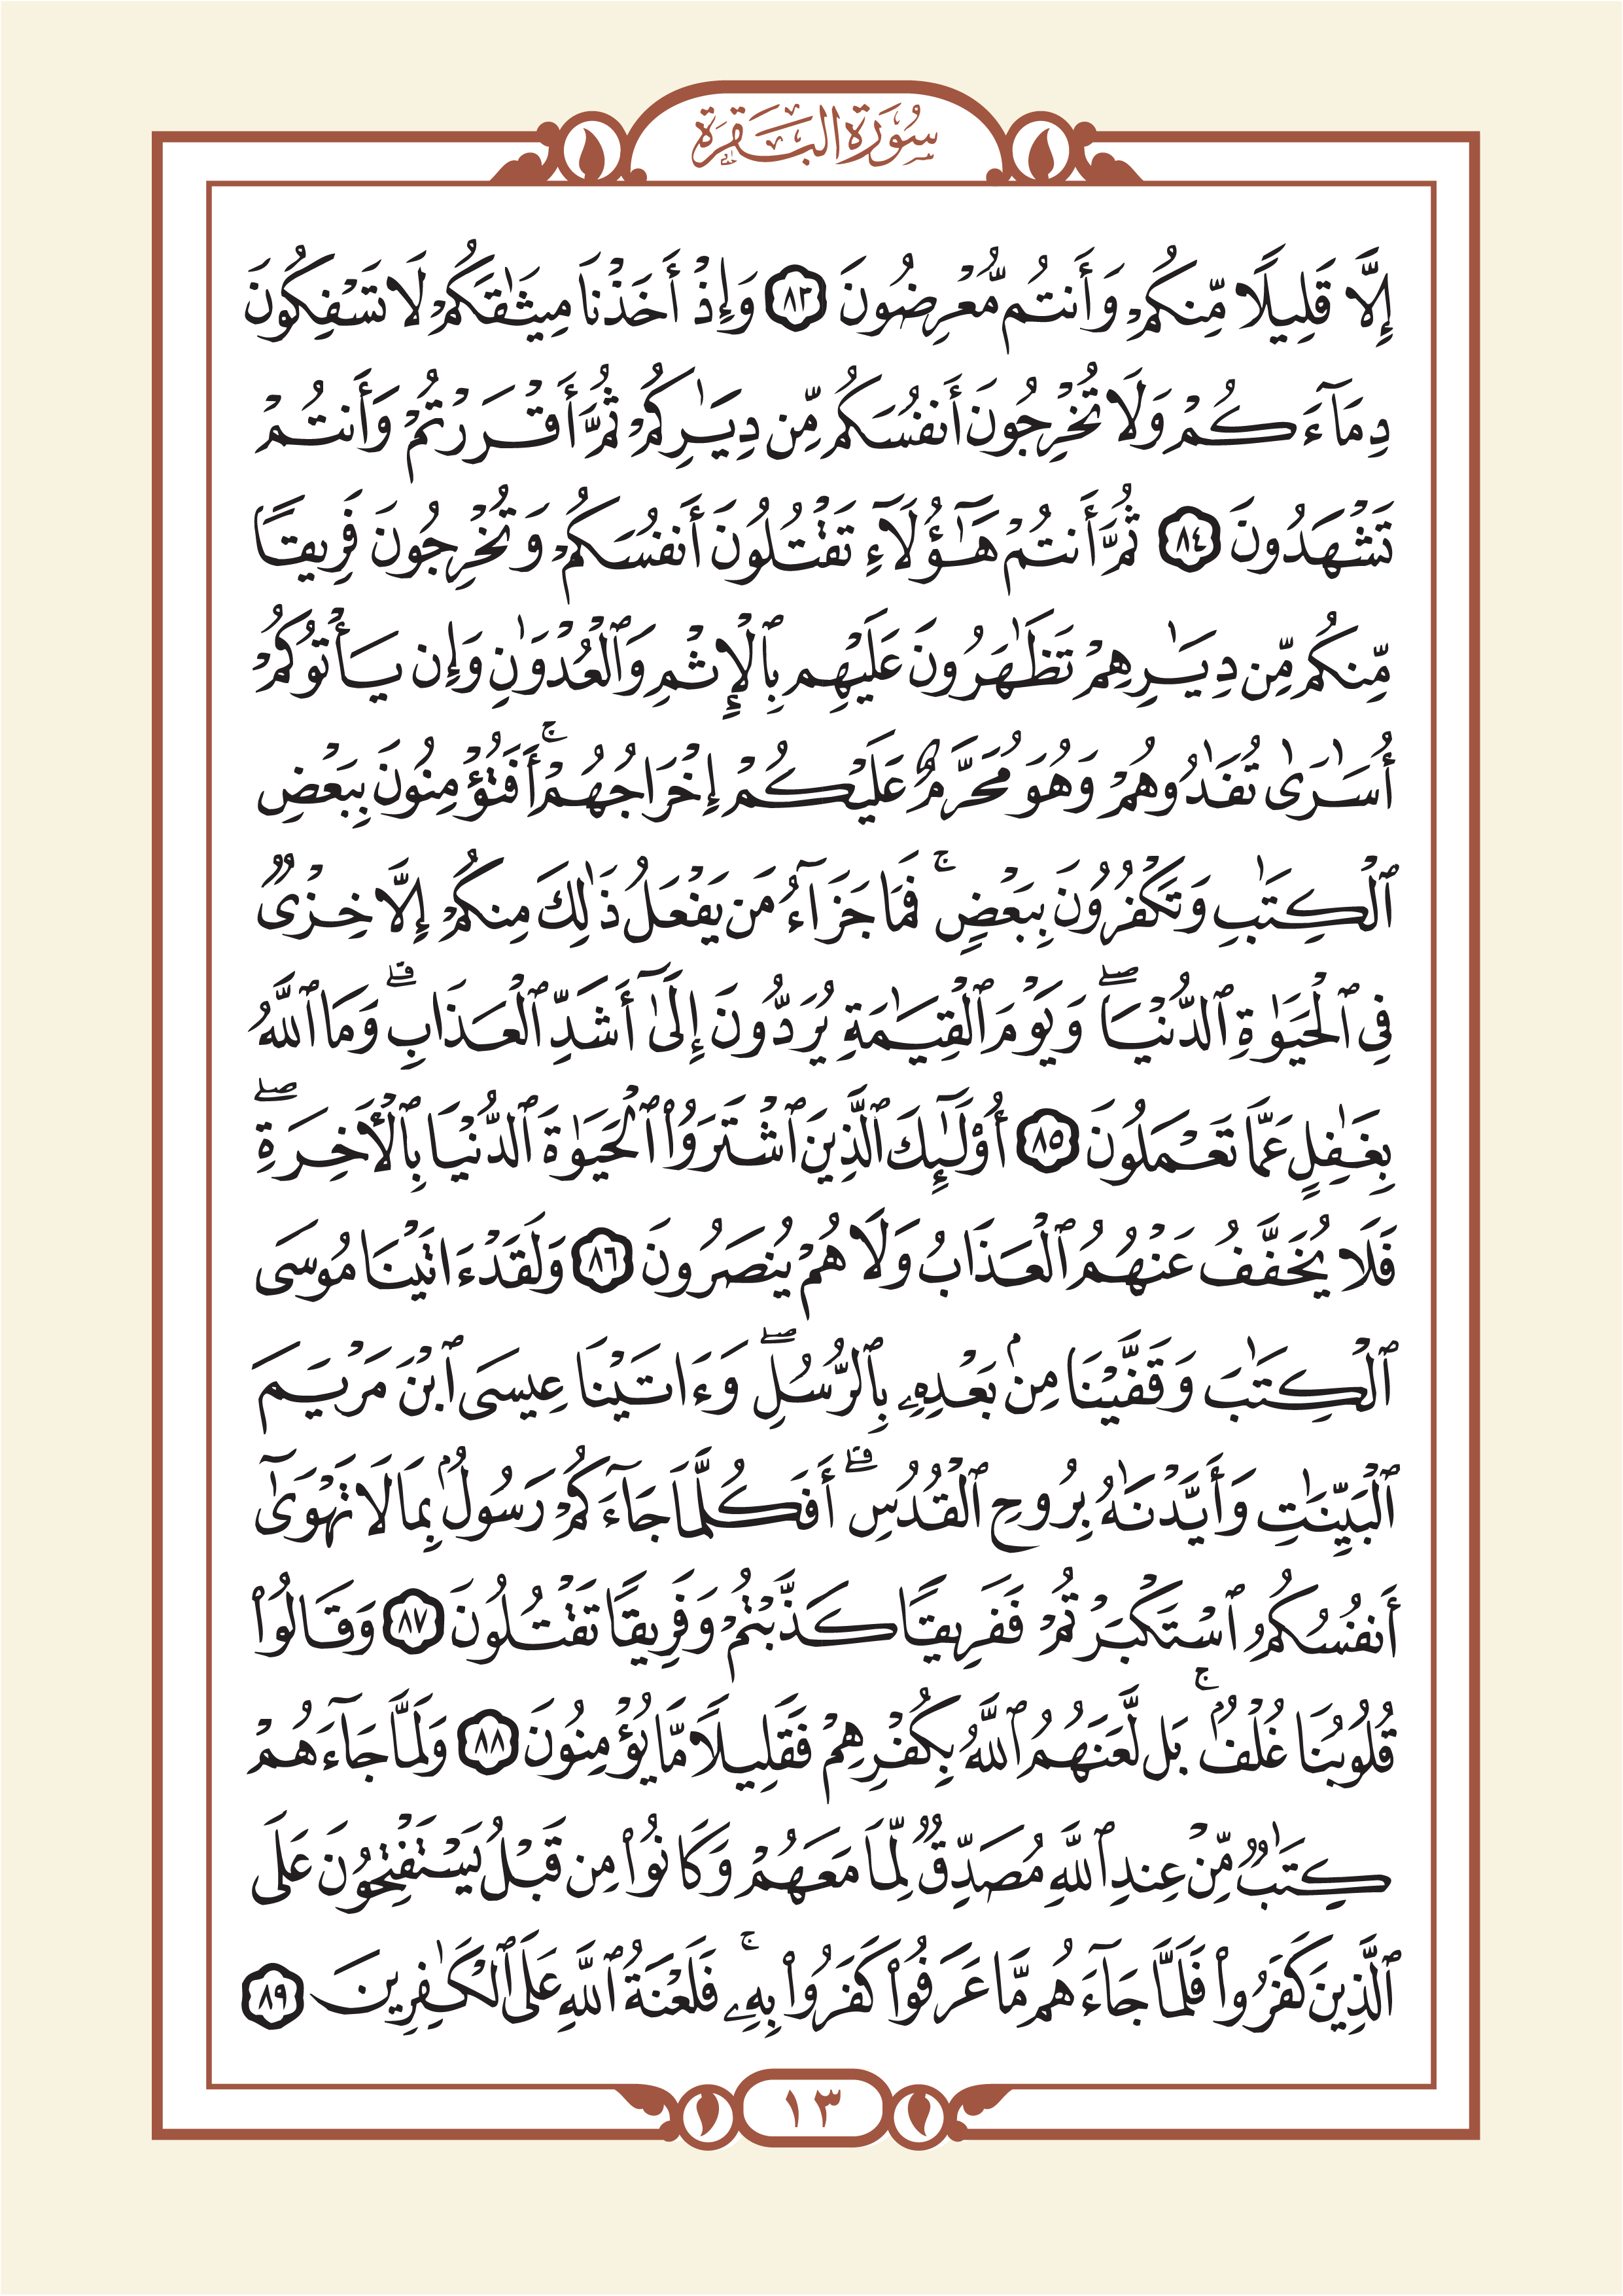 سُورَةُ البَقَرَةِ
إِلَّا قَلِيلًا مِّنكُمْ وَأَنتُم مُّعْرِضُونَ ٨٣ وَإِذْ أَخَذْنَا مِيثَٰقَكُمْ لَا تَسْفِكُونَ
دِمَآءَكُمْ وَلَا تُخْرِجُونَ أَنفُسَكُم مِّن دِيَٰرِكُمْ ثُمَّ أَقْرَرْتُمْ وَأَنتُمْ
تَشْهَدُونَ ٨٤ ثُمَّ أَنتُمْ هَٰٓؤُلَآءِ تَقْتُلُونَ أَنفُسَكُمْ وَتُخْرِجُونَ فَرِيقًا
مِّنكُم مِّن دِيَٰرِهِمْ تَظَٰهَرُونَ عَلَيْهِم بِٱلْإِثْمِ وَٱلْعُدْوَٰنِ وَإِن يَأْتُوكُمْ
أُسَٰرَىٰ تُفَٰدُوهُمْ وَهُوَ مُحَرَّمٌ عَلَيْكُمْ إِخْرَاجُهُمْ ۚ أَفَتُؤْمِنُونَ بِبَعْضِ
ٱلْكِتَٰبِ وَتَكْفُرُونَ بِبَعْضٍ ۚ فَمَا جَزَآءُ مَن يَفْعَلُ ذَٰلِكَ مِنكُمْ إِلَّا خِزْىٌ
فِى ٱلْحَيَوٰةِ ٱلدُّنْيَا ۖ وَيَوْمَ ٱلْقِيَٰمَةِ يُرَدُّونَ إِلَىٰٓ أَشَدِّ ٱلْعَذَابِ ۗ وَمَا ٱللَّهُ
بِغَٰفِلٍ عَمَّا تَعْمَلُونَ ٨٥ أُو۟لَٰٓئِكَ ٱلَّذِينَ ٱشْتَرَوُا۟ ٱلْحَيَوٰةَ ٱلدُّنْيَا بِٱلْأَخِرَةِ ۖ
فَلَا يُخَفَّفُ عَنْهُمُ ٱلْعَذَابُ وَلَا هُمْ يُنصَرُونَ ٨٦ وَلَقَدْ ءَاتَيْنَا مُوسَى
ٱلْكِتَٰبَ وَقَفَّيْنَا مِنۢ بَعْدِهِۦ بِٱلرُّسُلِ ۖ وَءَاتَيْنَا عِيسَى ٱبْنَ مَرْيَمَ
ٱلْبَيِّنَٰتِ وَأَيَّدْنَٰهُ بِرُوحِ ٱلْقُدُسِ ۗ أَفَكُلَّمَا جَآءَكُمْ رَسُولٌۢ بِمَا لَا تَهْوَىٰٓ
أَنفُسُكُمُ ٱسْتَكْبَرْتُمْ فَفَرِيقًا كَذَّبْتُمْ وَفَرِيقًا تَقْتُلُونَ ٨٧ وَقَالُوا۟
قُلُوبُنَا غُلْفٌۢ ۚ بَل لَّعَنَهُمُ ٱللَّهُ بِكُفْرِهِمْ فَقَلِيلًا مَّا يُؤْمِنُونَ ٨٨ وَلَمَّا جَآءَهُمْ
كِتَٰبٌ مِّنْ عِندِ ٱللَّهِ مُصَدِّقٌ لِّمَا مَعَهُمْ وَكَانُوا۟ مِن قَبْلُ يَسْتَفْتِحُونَ عَلَى
ٱلَّذِينَ كَفَرُوا۟ فَلَمَّا جَآءَهُم مَّا عَرَفُوا۟ كَفَرُوا۟ بِهِۦ ۚ فَلَعْنَةُ ٱللَّهِ عَلَى ٱلْكَٰفِرِينَ ٨٩
١٣